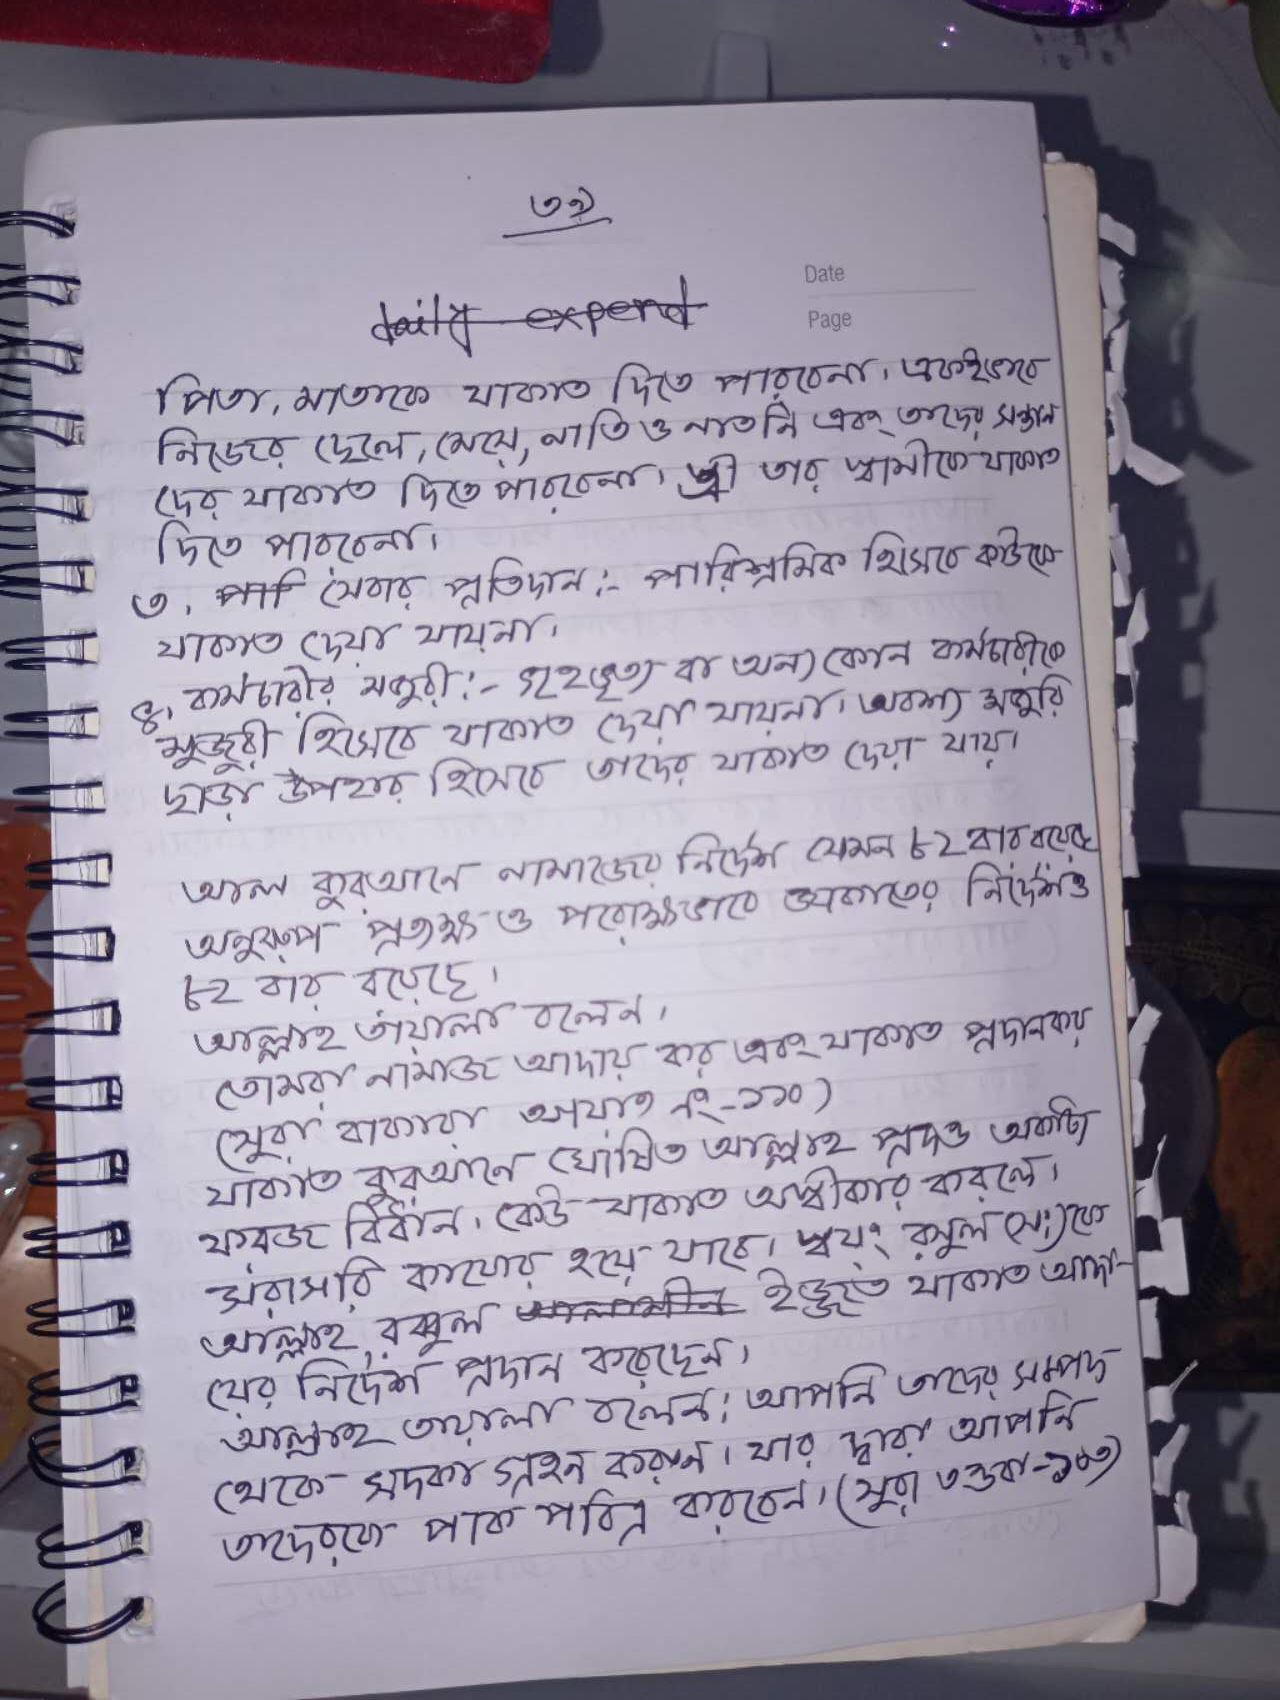 ৩৯
Date
daily expend
Page
পিতা, মাতাকে যাকাত দিতে পারবেনা। একইভাবে
নিজের ছেলে, মেয়ে, নাতি ও নাতনি এবং তাদের সন্তান
দের যাকাত দিতে পারবেনা। স্ত্রী তার স্বামীকে যাকাত
দিতে পারবেনা।
৩. সেবার প্রতিদান :- পারিশ্রমিক হিসেবে কাউকে
যাকাত দেয়া যায়না।
৪. কর্মচারীর মজুরী :- গৃহভৃত্য বা অন্য কোন কর্মচারীকে
মুজুরী হিসেবে যাকাত দেয়া যায়না। অবশ্য মজুরি
ছাড়া উপহার হিসেবে তাদের যাকাত দেয়া যায়।
আল কুরআনে নামাজের নির্দেশ যেমন ৮২ বার রয়েছে
অনুরূপ প্রত্যক্ষ ও পরোক্ষভাবে যাকাতের নির্দেশও
৮২ বার রয়েছে।
আল্লাহ তা'য়ালা বলেন।
তোমরা নামাজ আদায় কর এবং যাকাত প্রদান কর
(সুরা বাকারা আয়াত নং-১১০)
যাকাত কুরআনে ঘোষিত আল্লাহ প্রদত্ত একটি
ফরজ বিধান। কেউ যাকাত অস্বীকার করলে।
সরাসরি কাফের হয়ে যাবে। স্বয়ং রসুল (স:) কে
আল্লাহ রব্বুল আলামীন ইজ্জতে যাকাত আদা-
য়ের নির্দেশ প্রদান করেছেন।
আল্লাহ তায়ালা বলেন; আপনি তাদের সম্পদ
থেকে সদকা গ্রহন করুন। যার দ্বারা আপনি
তাদেরকে পাক পবিত্র করবেন। (সুরা তওবা-১০৩)